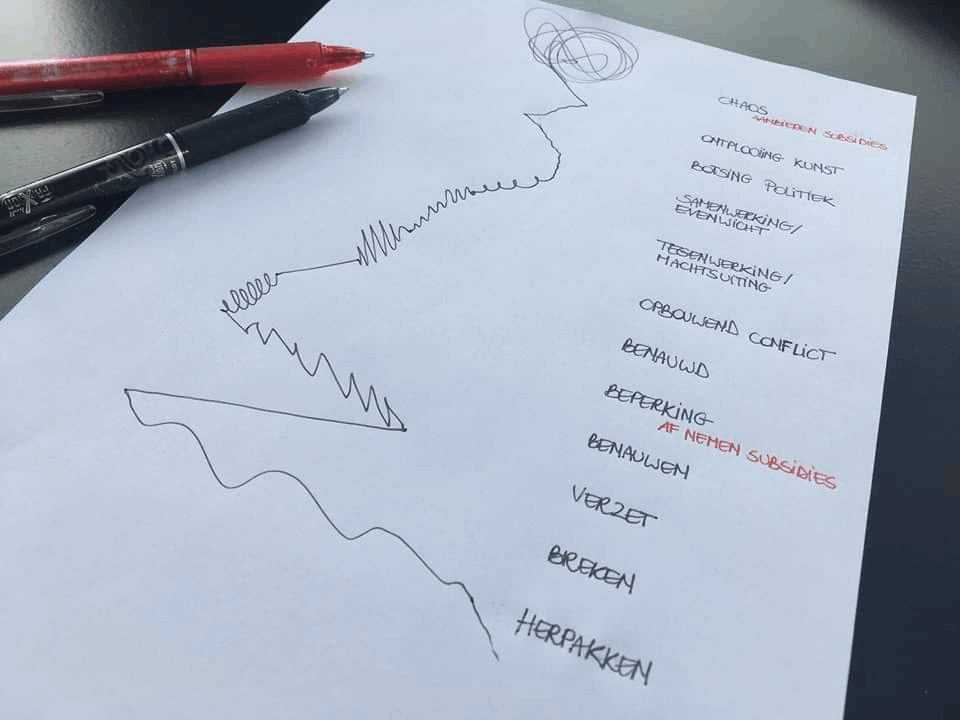 CHAOS
AANBIEDEN SUBSIDIES
ONTPLOOIING KUNST
BOTSING POLITIEK
SAMENWERKING/
EVENWICHT
TEGENWERKING/
MACHTSUITING
OPBOUWEND CONFLICT
BENAUWD
BEPERKING
AF NEMEN SUBSIDIES
BENAUWEN
VERZET
BREKEN
HERPAKKEN